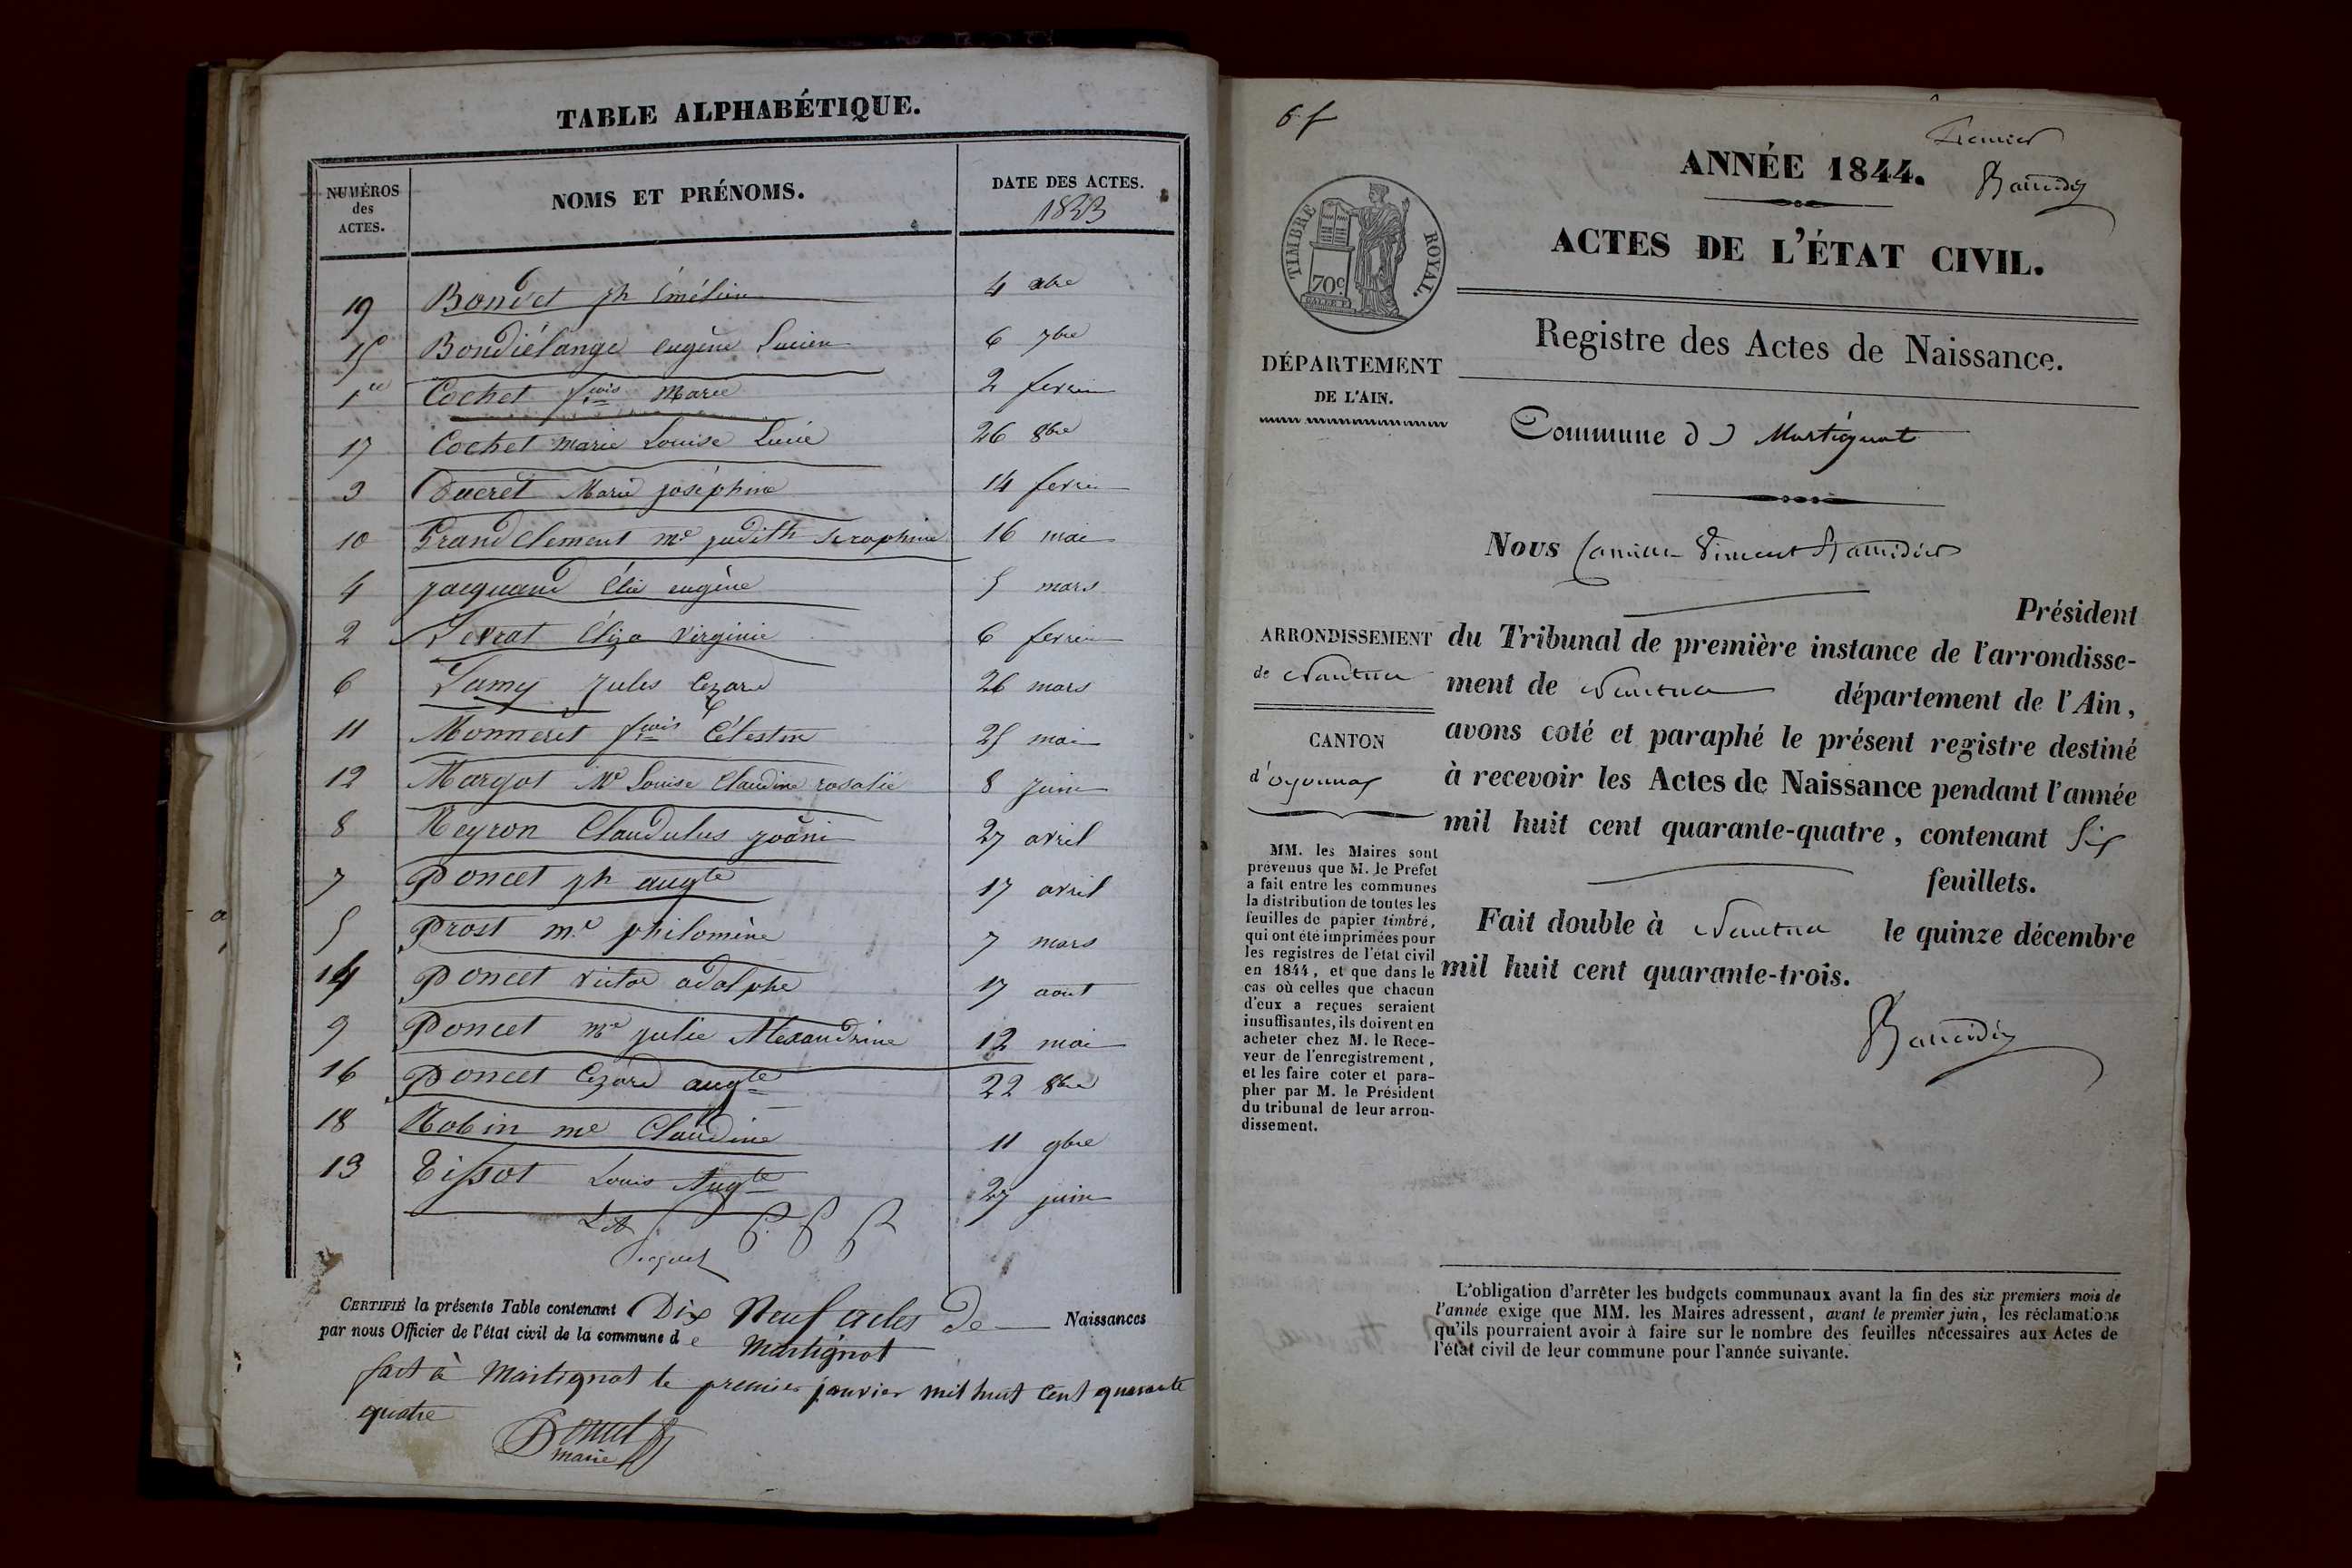 TABLE ALPHABÉTIQUE.
NUMÉROS
des
ACTES.
NOMS ET PRÉNOMS.
DATE DES ACTES.
19 Bondet ph Émélien 4 xbre
15 Bondiélange eugène Lucien 6 7bre
1er Cochet fcois Marie 2 fevrier
17 Cochet marie Louise Lucie 26 8bre
3 Ducret Marie joséphine 14 fevrier
10 Grandclement me judith Seraphine 16 mai
4 jacquand Élie eugène 5 mars
2 Levrat Éliza Virginie 6 fevrier
6 Lamy jules Cezard 26 mars
11 Monneret fcois Célestin 25 mai
12 Margot Me Louise Claudine rosalie 8 juin
8 Neyron Claudulus joani 27 avril
7 Poncet ph augte 17 avril
5 Prost me philomène 7 mars
14 Poncet victor adolphe 17 aout
9 Poncet me julie Alexandrine 12 mai
16 Poncet Cezard augte 22 8bre
18 Robin me Claudine 11 9bre
13 Tissot Louis Augte 27 juin
CERTIFIÉ la présente Table contenant Dix Neuf actes de Naissances
par nous Officier de l'état civil de la commune de Martignat
fait à Martignat le premier janvier mil huit cent quarante
quatre
Poncet
maire
6 f
Premier
ANNÉE 1844.
ACTES DE L'ÉTAT CIVIL.
TIMBRE ROYAL.
70c.
Registre des Actes de Naissance.
DÉPARTEMENT
DE L'AIN.
Commune de Martignat
Nous Camille Vincent
Président
ARRONDISSEMENT
de Nantua
CANTON
d'oyonnax
du Tribunal de première instance de l'arrondisse-
ment de Nantua département de l'Ain,
avons coté et paraphé le présent registre destiné
à recevoir les Actes de Naissance pendant l'année
mil huit cent quarante-quatre, contenant Six
feuillets.
Fait double à Nantua le quinze décembre
mil huit cent quarante-trois.
MM. les Maires sont
prévenus que M. le Préfet
a fait entre les communes
la distribution de toutes les
feuilles de papier timbré,
qui ont été imprimées pour
les registres de l'état civil
en 1844, et que dans le
cas où celles que chacun
d'eux a reçues seraient
insuffisantes, ils doivent en
acheter chez M. le Rece-
veur de l'enregistrement,
et les faire coter et para-
pher par M. le Président
du tribunal de leur arron-
dissement.
L'obligation d'arrêter les budgets communaux avant la fin des six premiers mois de
l'année exige que MM. les Maires adressent, avant le premier juin, les réclamations
qu'ils pourraient avoir à faire sur le nombre des feuilles nécessaires aux Actes de
l'état civil de leur commune pour l'année suivante.